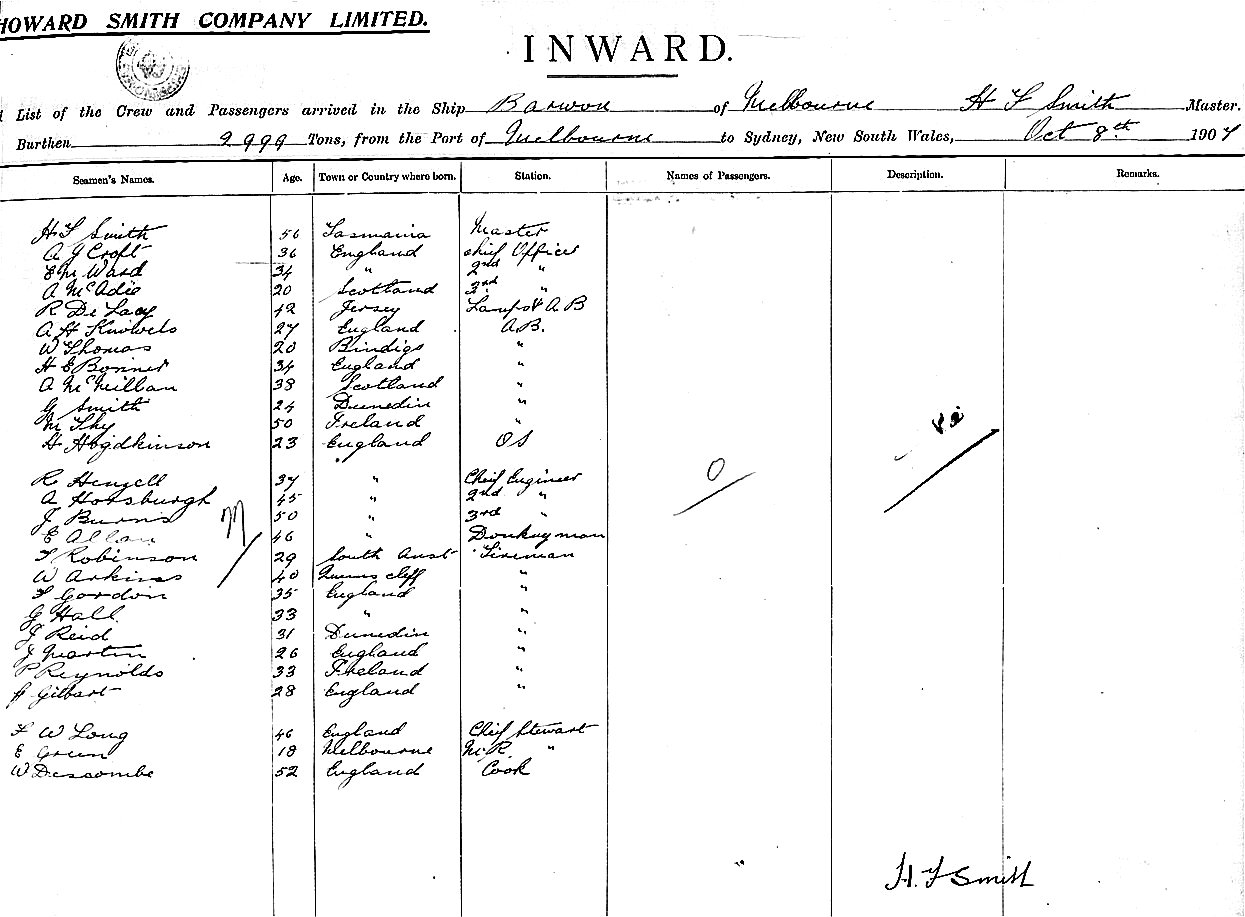 HOWARD SMITH COMPANY LIMITED.
INWARD.
List of the Crew and Passengers arrived in the Ship Barwon of Melbourne H F Smith Master.
Burthen 2999 Tons, from the Port of Melbourne to Sydney, New South Wales, Oct 8th 1907
Seamen's Names. Age. Town or Country where born. Station. Names of Passengers. Description. Remarks.
H F Smith 56 Tasmania Master
A J Croft 36 England chief Officer
E M Ward 34 " 2nd "
A McAdie 20 Scotland 3rd "
R De Lacy 42 Jersey Lamps & A B
A H Knowels 27 England A.B.
W Thomas 20 Bindigo "
H E Bonner 34 England "
A McMillan 38 Scotland "
G Smith 24 Dunedin "
M Shy 50 Ireland "
H Hogdkinson 23 England OS
R Hengell 37 " Chief Engineer
A Horsburgh 45 " 2nd "
J Burns 50 " 3rd "
E Allan 46 " Donkeyman
F Robinson 29 South Aust Fireman
W Arkins 40 Queens cliff "
F Gordon 35 England "
G Hall 33 " "
J Reid 31 Dunedin "
J Martin 26 England "
P Reynolds 33 Ireland "
H Gilbart 28 England "
F W Long 46 England Chief Stewart
E Green 18 Melbourne M.R. "
W Descombe 52 England Cook
H. F Smith